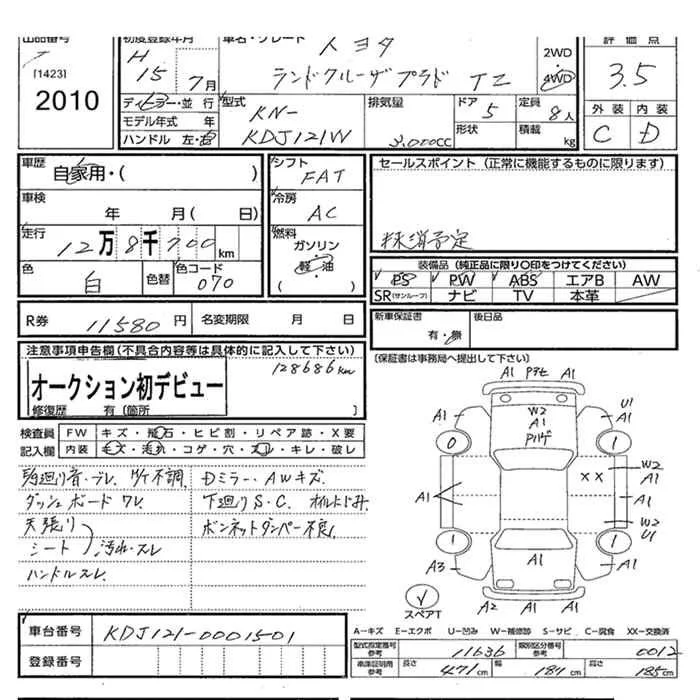 出品番号
[1423]
2010
初度登録年月
H
15 7月
車名・グレード
トヨタ
ランドクルーザプラド TZ
2WD
4WD
評価点
3.5
外装 内装
C D
ディーラー・並行
モデル年式 年
ハンドル 左・右
型式
KN-
KDJ121W
排気量
3.000CC
ドア
5
形状
定員
8人
積載
kg
車歴
自家用・( )
シフト
FAT
セールスポイント (正常に機能するものに限ります)
抹消予定
車検
年 月( 日)
冷房
AC
走行
12万8千700km
燃料
ガソリン
軽油
( )
色
白
色替
色コード
070
装備品 (純正品に限り○印をつけてください)
PS PW ABS エアB AW
SR(サンルーフ) ナビ TV 本革
R券 11580円 名変期限 月 日
新車保証書
有・無
後日品
(保証書は事務局へ提出して下さい)
注意事項申告欄(不具合内容等は具体的に記入して下さい)
128686km
オークション初デビュー
修復歴 有〔箇所 〕
検査員
記入欄
FW キズ・飛石・ヒビ割・リペア跡・X要
内装 キズ・汚れ・コゲ・穴・スレ・キレ・破レ
ダッシュボード ワレ
天張り
シート
汚れ・スレ
ハンドルスレ
Dミラー・AWキズ
下廻りS・C オイルにじみ
ボンネットダンパー不良
A1 A1
W2
A1
U1
A1 A1
0 1
XX
W2
A1
A1
W2
U1
1 1
A1
A3 A1
A2 A1
スペアT
車台番号 KDJ121-0001501
登録番号
A-キズ E-エクボ U-凹み W-補修跡 S-サビ C-腐食 XX-交換済
型式指定番号
参考
11636
類別区分番号
参考
0012
車庫証明用
参考
長さ 471cm 幅 187cm 高さ 185cm